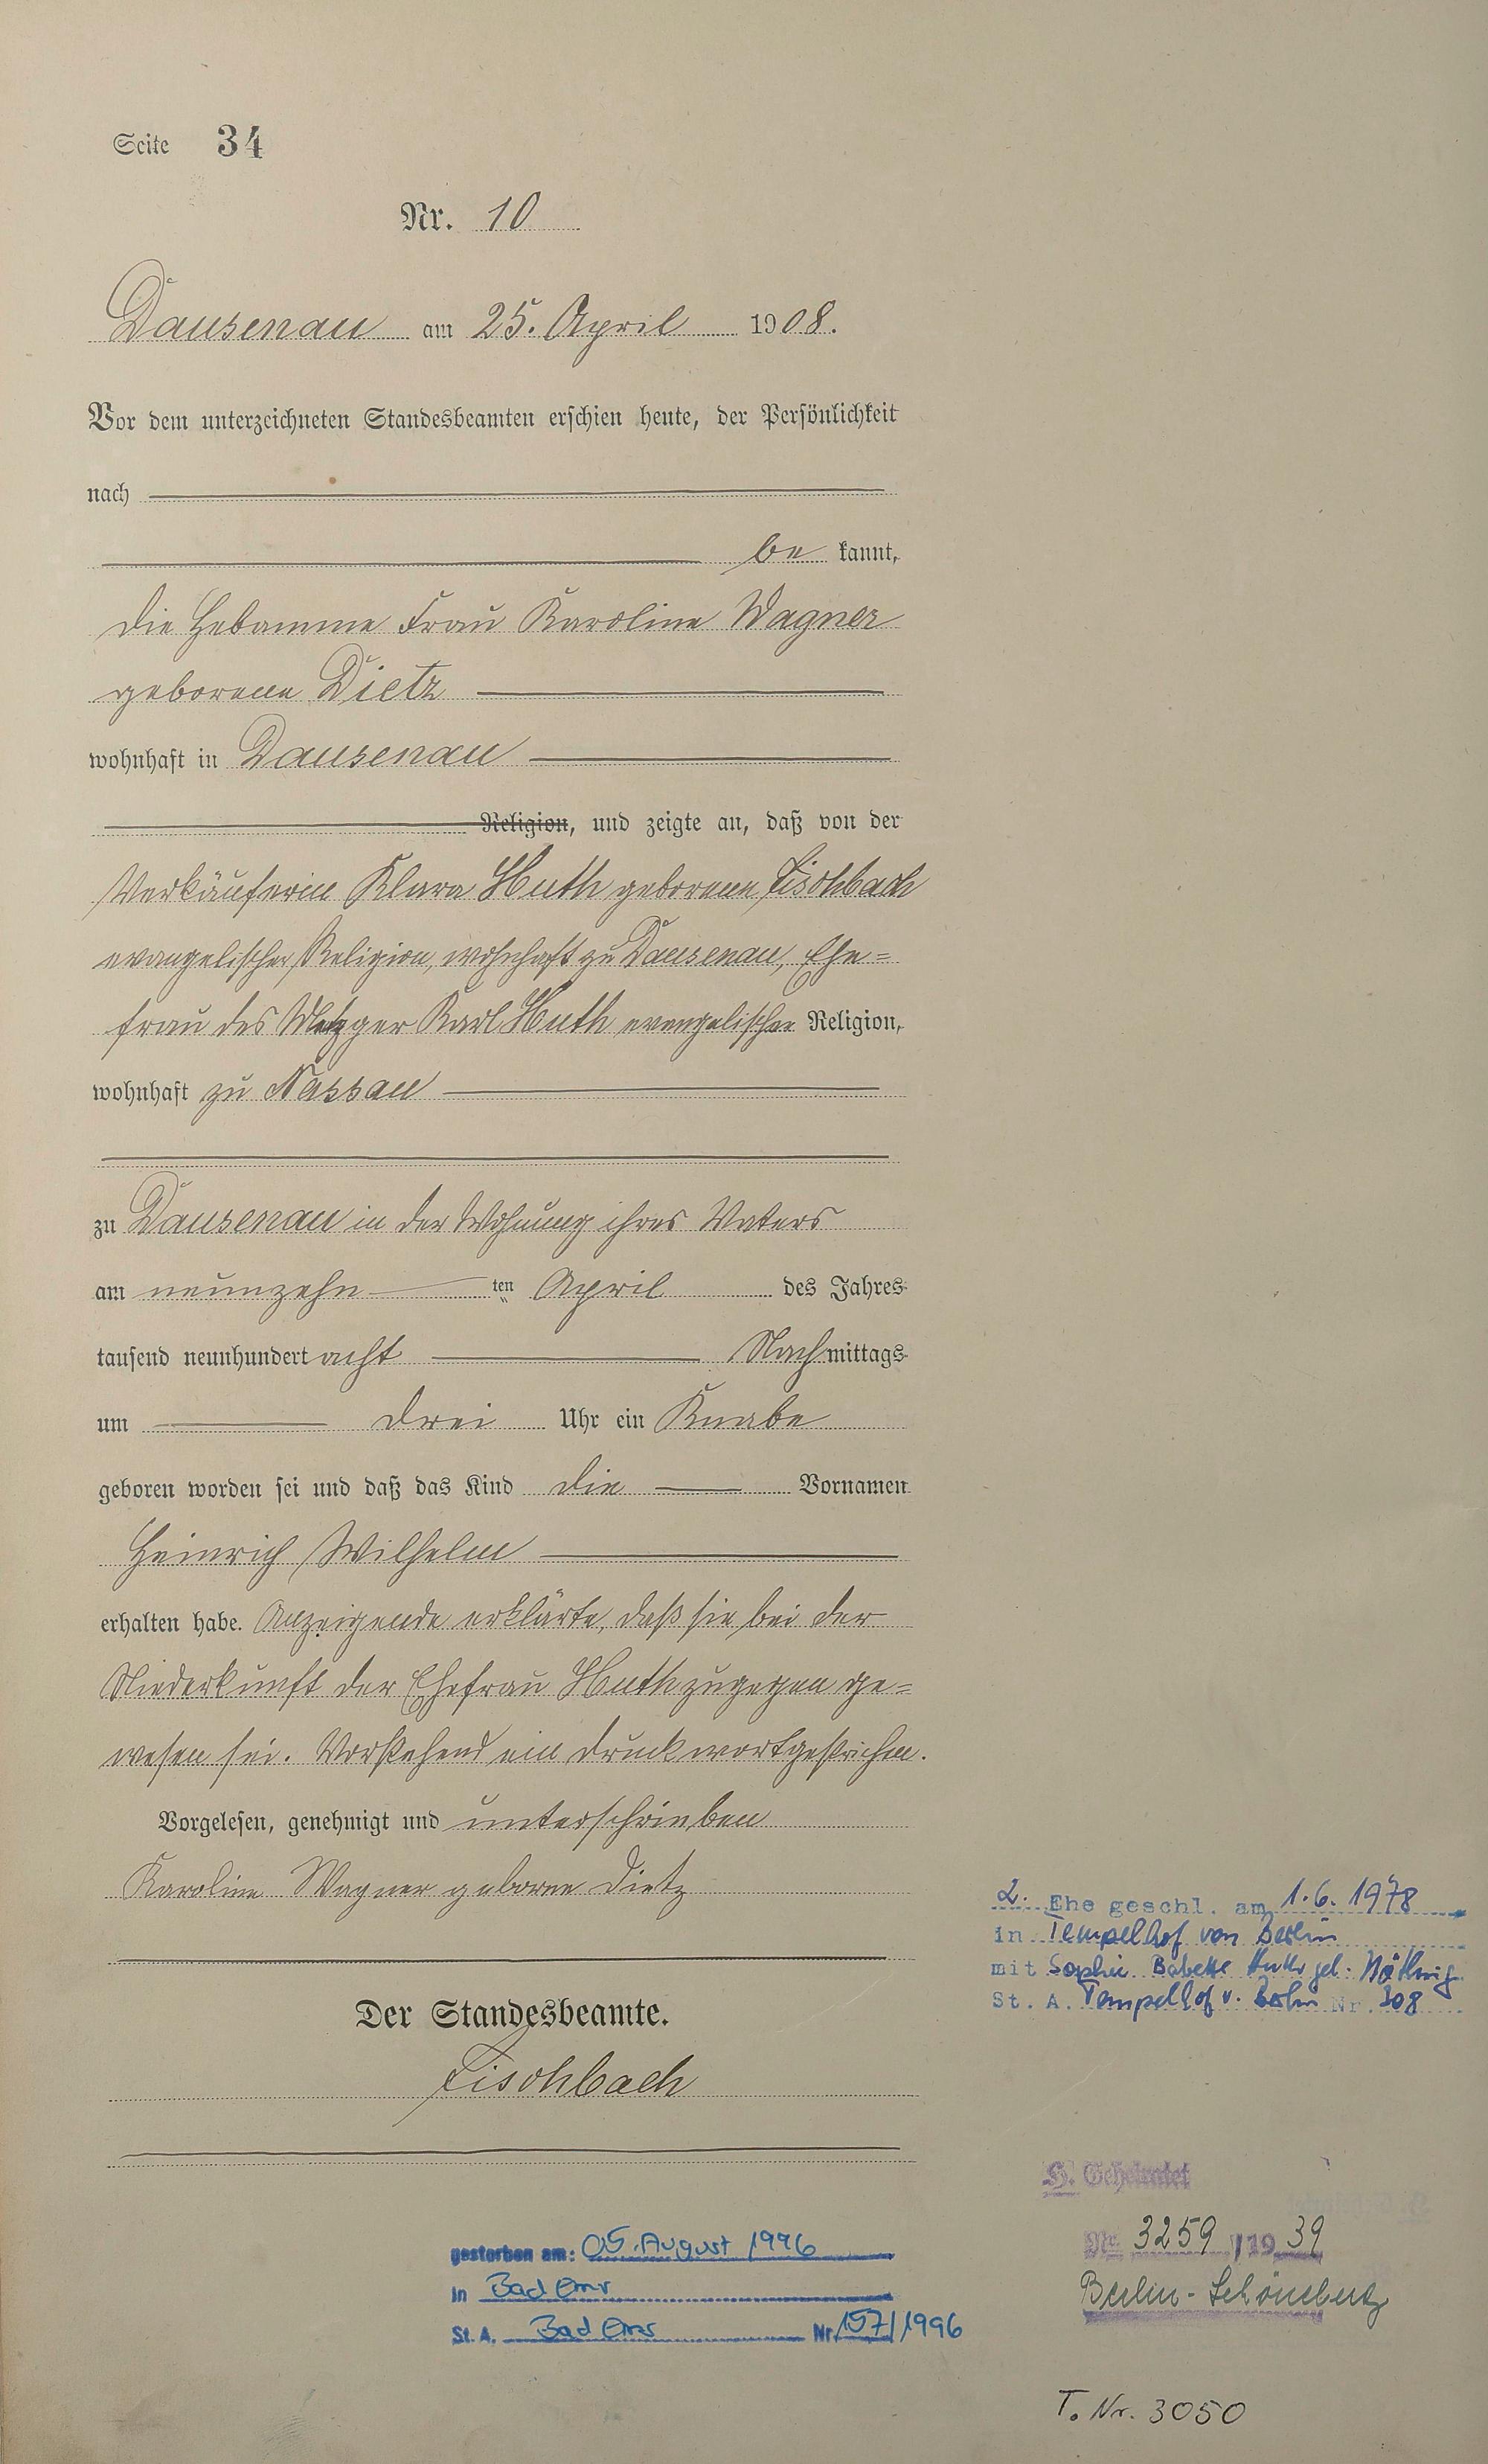 Seite 34
Nr. 10
Dausenau am 25. April 1908.
Vor dem unterzeichneten Standesbeamten erschien heute, der Persönlichkeit
nach
be kannt,
die Hebamme Frau Karoline Wagner
geborene Dietz
wohnhaft in Dausenau
Religion, und zeigte an, daß von der
Verkäuferin Klara Huth geborene Fischbach
evangelischer Religion, wohnhaft zu Dausenau, Ehe=
frau des Metzger Karl Huth evangelischer Religion,
wohnhaft zu Nassau
zu Dausenau in der Wohnung ihres Vaters
am neunzehn ten April des Jahres
tausend neunhundert acht Nachmittags
um drei Uhr ein Knabe
geboren worden sei und daß das Kind die Vornamen
Heinrich Wilhelm
erhalten habe. Anzeigende erklärte, daß sie bei der
Niederkunft der Ehefrau Huth zugegen ge=
wesen sei. Vorstehend ein Druckwort gestrichen.
Vorgelesen, genehmigt und unterschrieben
Karoline Wagner geborne Dietz
Der Standesbeamte.
Fischbach
2. Ehe geschl. am 1.6.1978
in Tempelhof von Berlin
mit Sophie Babette Huth gel.
St. A. Tempelhof v. Berlin Nr. 308
H. Geheiratet
Nr. 3259 /1939
Berlin-Schöneberg
gestorben am: 05. August 1996
in Bad Ems
St. A. Bad Ems Nr. 157/1996
T. Nr. 3050